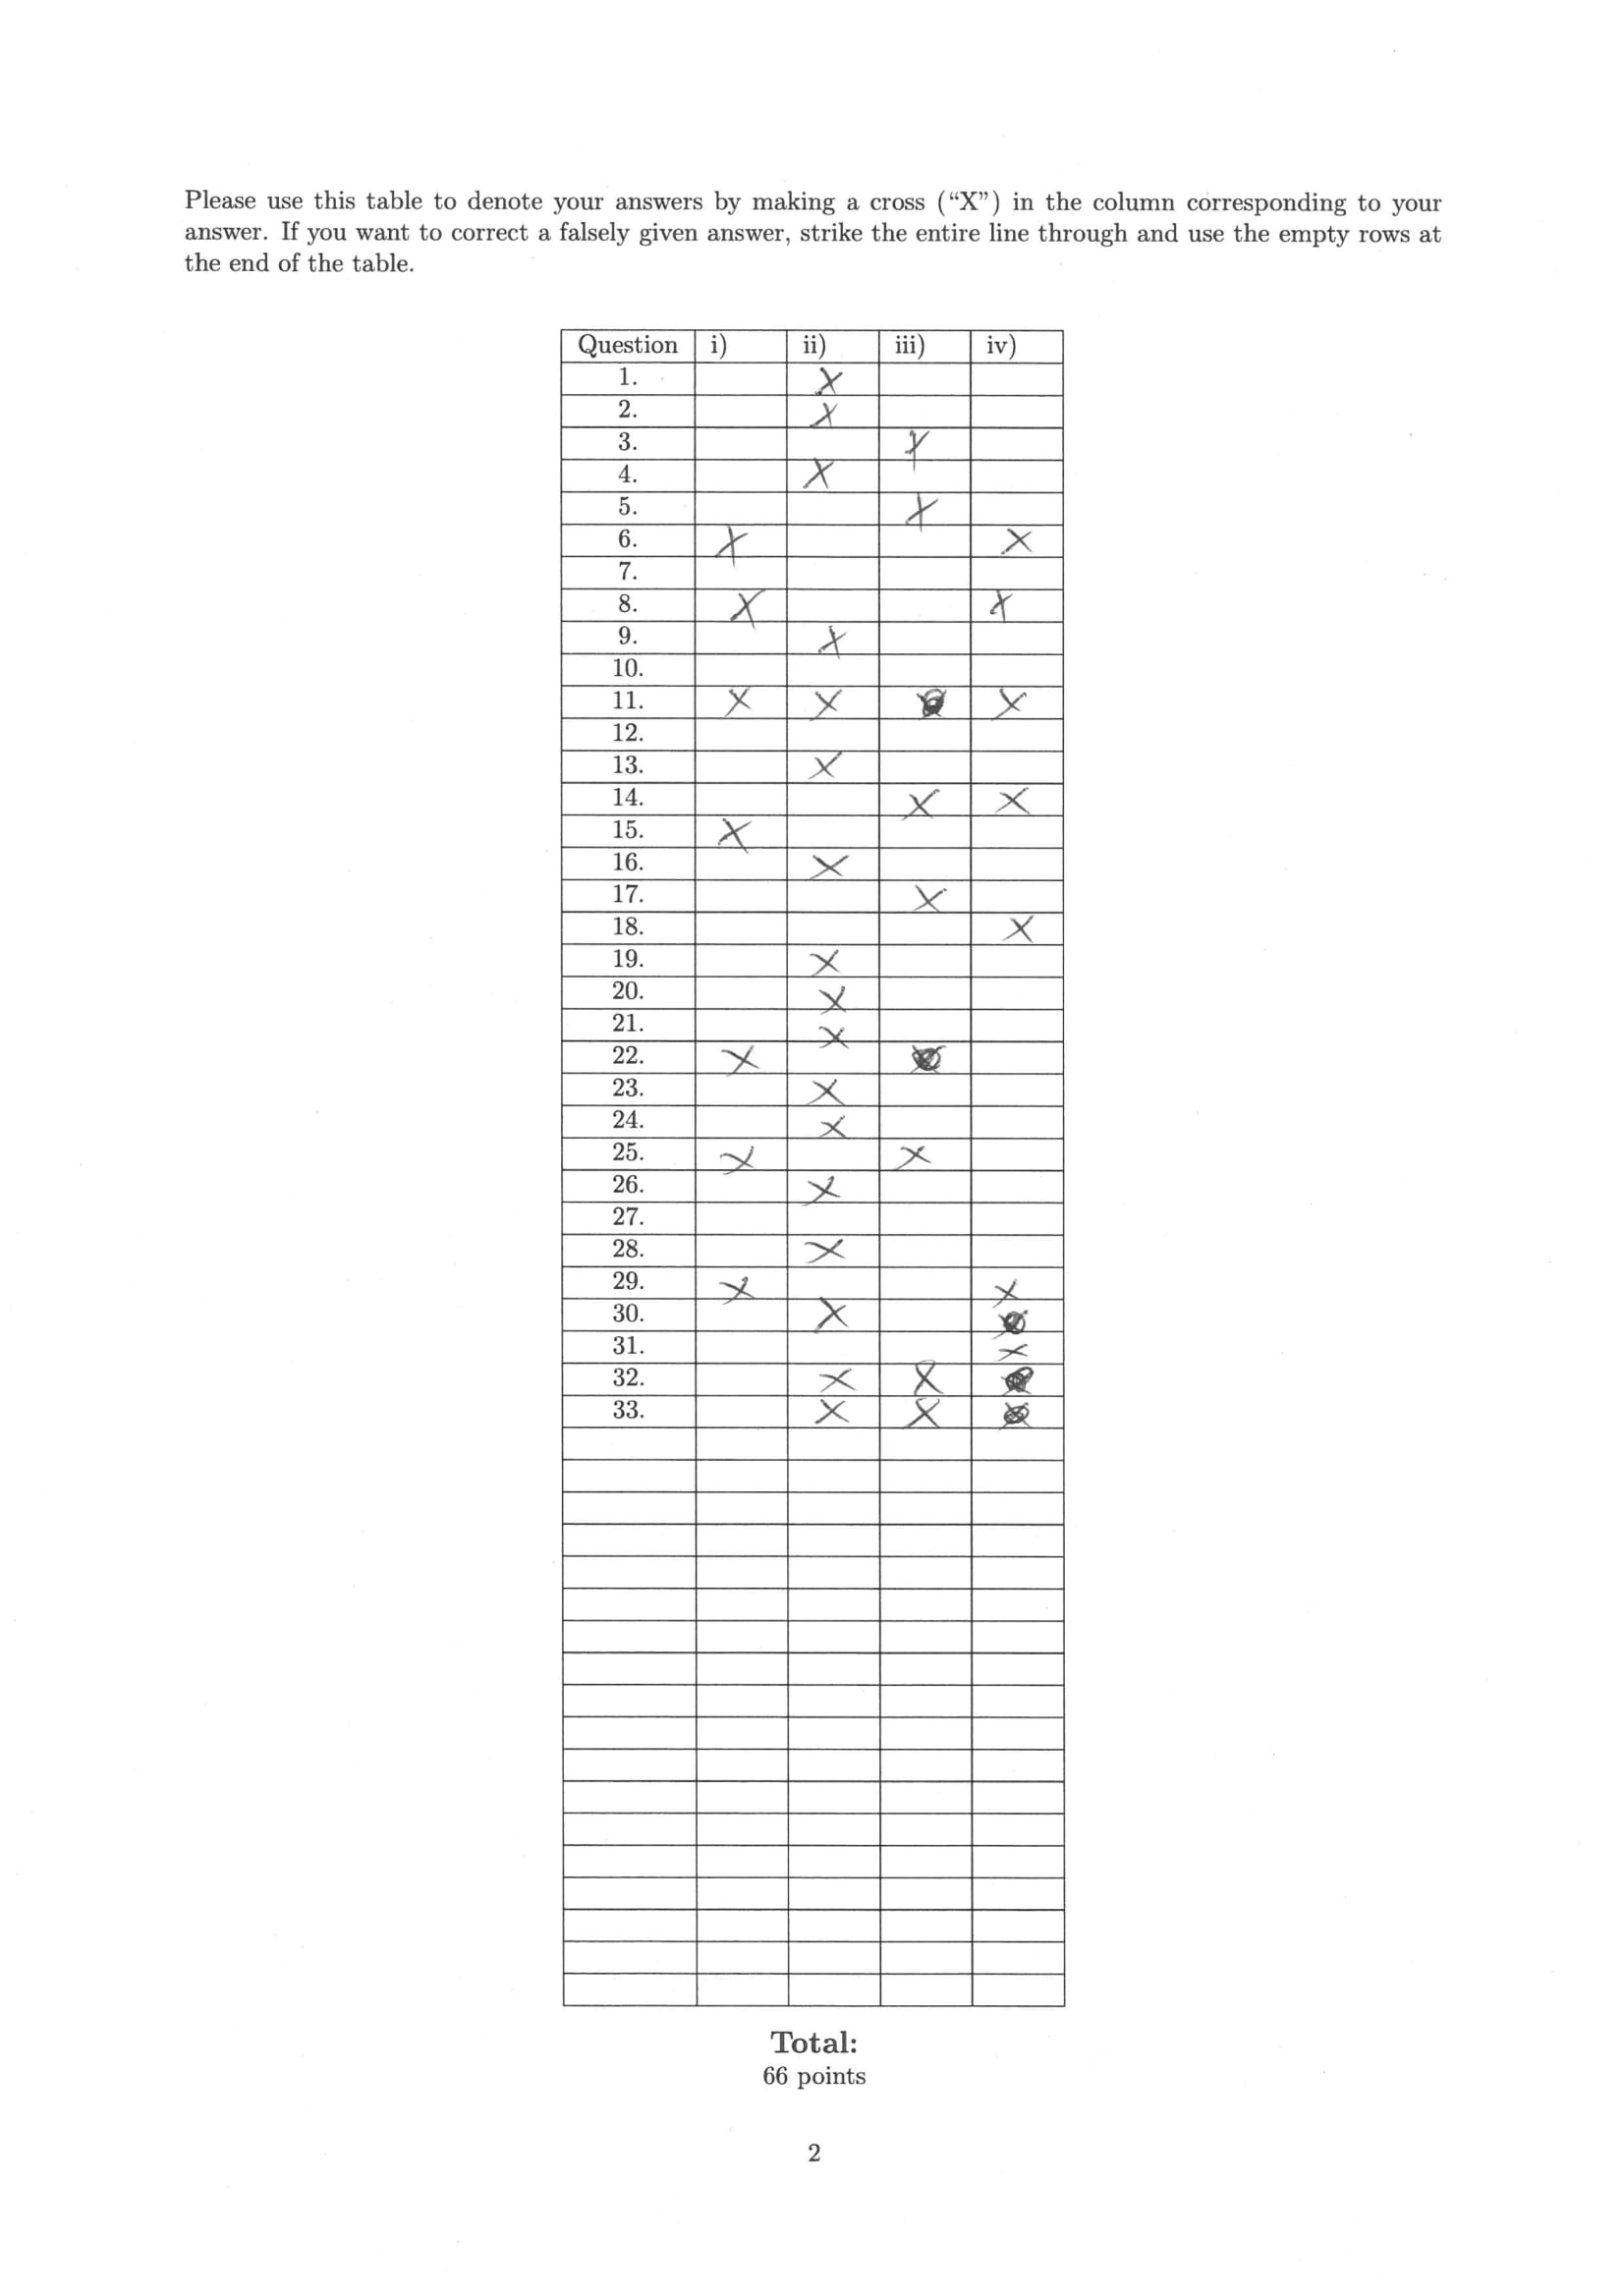 Please use this table to denote your answers by making a cross (“X”) in the column corresponding to your
answer. If you want to correct a falsely given answer, strike the entire line through and use the empty rows at
the end of the table.
Question i) ii) iii) iv)
1. X
2. X
3. X
4. X
5. X
6. X X
7.
8. X X
9. X
10.
11. X X X
12.
13. X
14. X X
15. X
16. X
17. X
18. X
19. X
20. X
21. X
22. X
23. X
24. X
25. X X
26. X
27.
28. X
29. X X
30. X
31. X
32. X X
33. X X
Total:
66 points
2